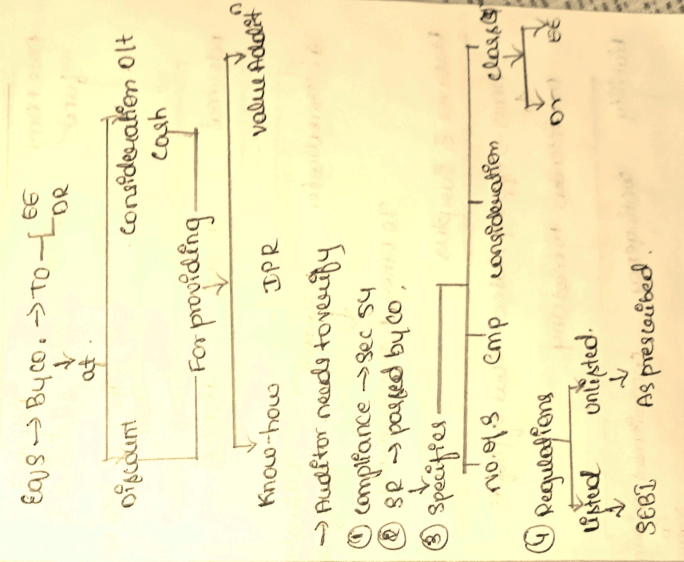 Eq.S → By co. → TO — EE
DR
↓
at.
Discount Consideration O/t
Cash
For providing
Know-how IPR value Additn
→ Auditor needs to verify
① Compliance → Sec 54
② SR → passed by co.
③ Specifies
↓
No. of S CMP consideration class(s)
Dr EE
④ Regulations
Listed unlisted.
↓ ↓
SEBI As prescribed.